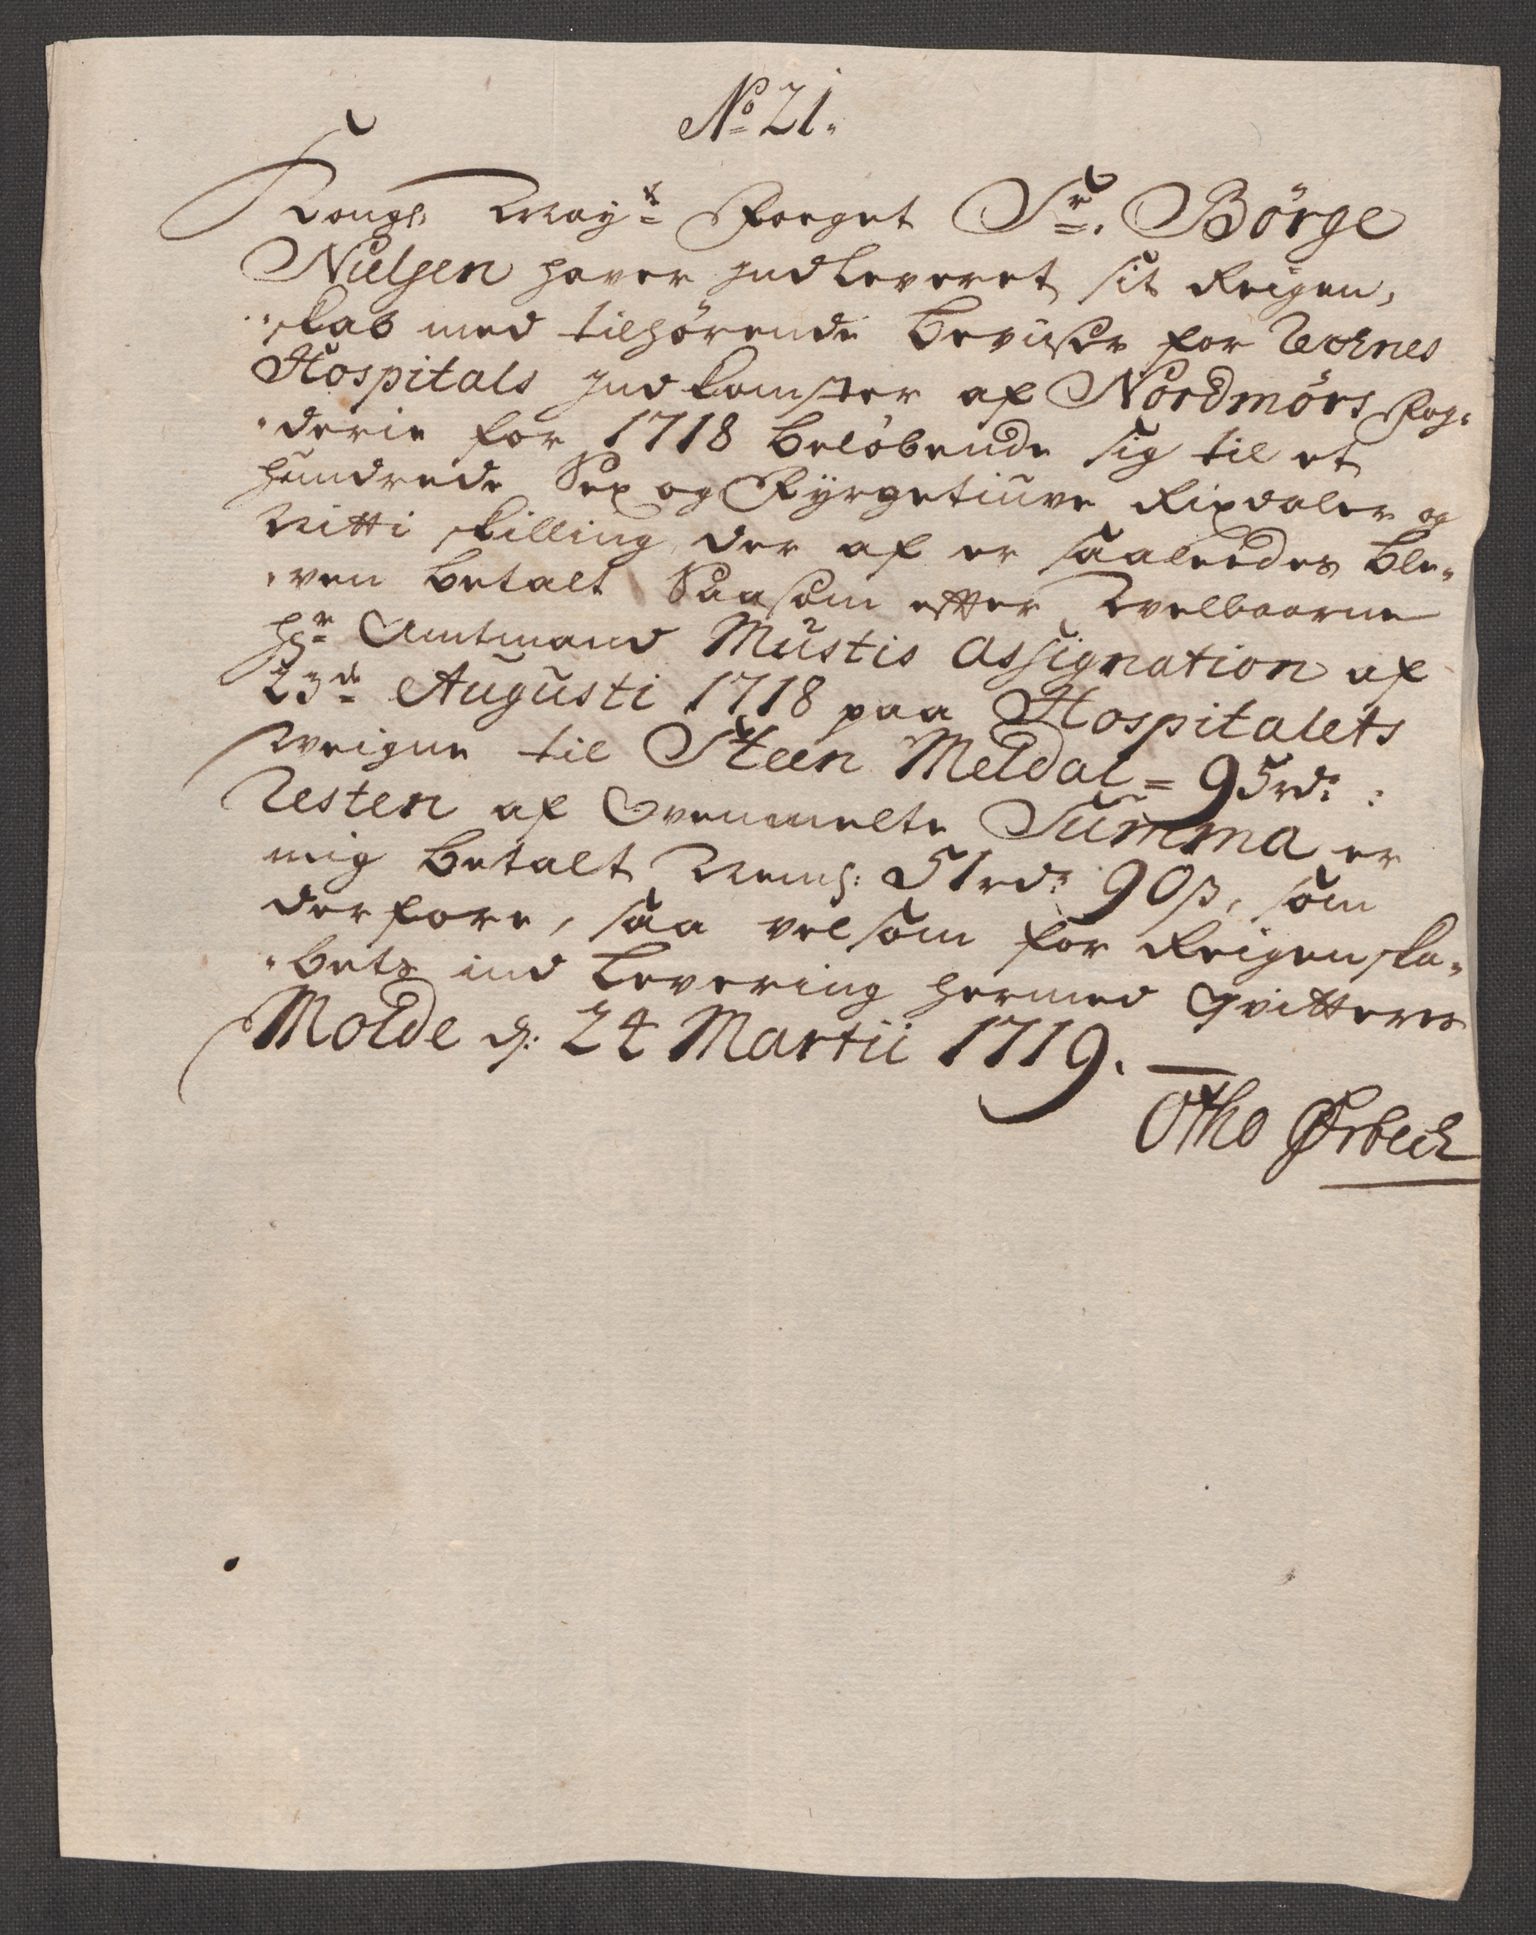 No 21.
Kongl. Mayts Foeget Sr. Børge
Nielsen haver indleveret sit Reigen,
skab med tilhørende beviiser for Reknes
Hospitals Indkomster af Nordmørs Fog-
derie for 1718 beløbende sig til et
hundrede Sex og Fyrgetiuve Rixdaler og
Nitti skilling der af er saaleedes ble-
ven betalt Saasom efter Welbaarne
Hr Amtmand Mustis assignation af
23de Augusti 1718 paa Hospitalets
weigne til Steen Meldal = 95rdr:
Resten af Ovenmelte Summa er
mig betalt Neml: 51rdr 90s, som
derfore, saa vel som for Reigenska-
bets ind levering hermed Qvitteres
Molde d: 24 Martii 1719.
Otho Ørbech